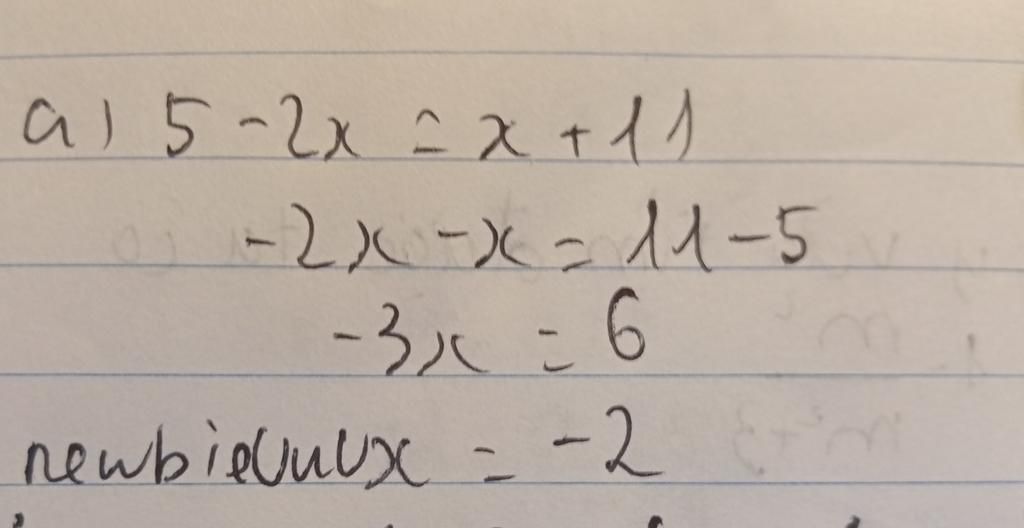 a) 5 - 2x = x + 11
-2x - x = 11 - 5
-3x = 6
x = -2